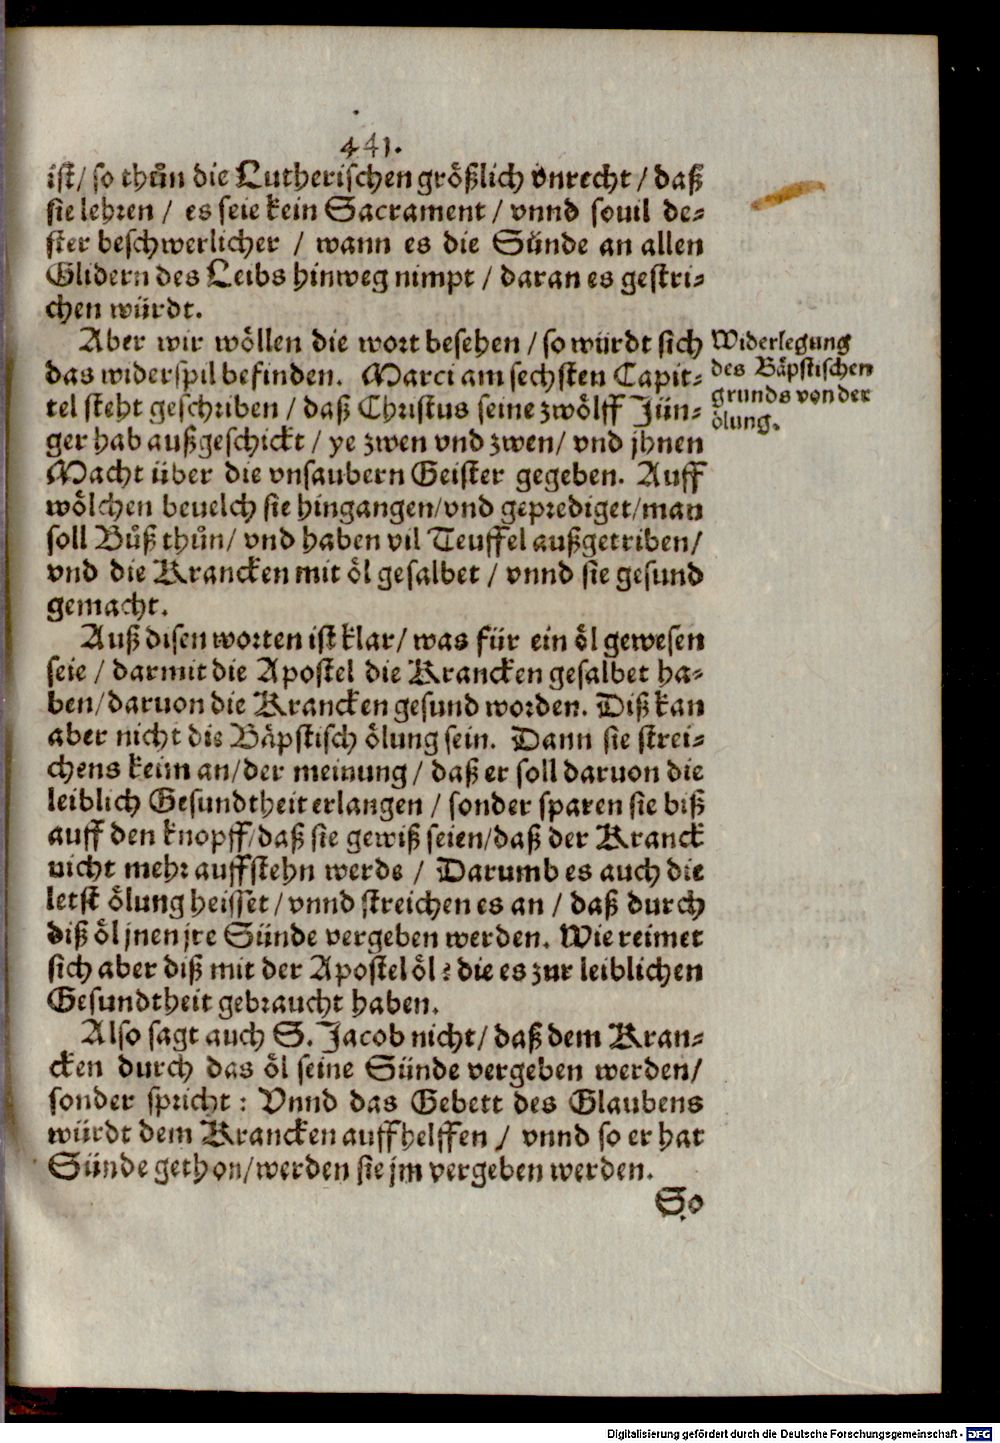 441.
ist/ so thůn die Lutherischen größlich vnrecht / daß
sie lehren / es seie kein Sacrament / vnnd souil de-
ster beschwerlicher / wann es die Sünde an allen
Glidern des Leibs hinweg nimpt / daran es gestri-
chen würdt.
Aber wir wöllen die wort besehen / so würdt sich
das widerspil befinden. Marci am sechsten Capit-
tel steht geschriben / daß Christus seine zwölff Jün-
ger hab außgeschickt / ye zwen vnd zwen/ vnd jhnen
Macht über die vnsaubern Geister gegeben. Auff
wölchen beuelch sie hingangen/vnd geprediget/man
soll Bůß thůn/ vnd haben vil Teuffel außgetriben/
vnd die Krancken mit öl gesalbet / vnnd sie gesund
gemacht.
Widerlegung
des Bäpstischen
grunds von der
ölung.
Auß disen worten ist klar/ was für ein öl gewesen
seie / darmit die Apostel die Krancken gesalbet ha-
ben/daruon die Krancken gesund worden. Diß kan
aber nicht die Bäpstisch ölung sein. Dann sie strei-
chens keim an/der meinung / daß er soll daruon die
leiblich Gesundtheit erlangen / sonder sparen sie biß
auff den knopff/daß sie gewiß seien/daß der Kranck
nicht mehr auffstehn werde / Darumb es auch die
letst ölung heisset / vnnd streichen es an / daß durch
diß öl jnen jre Sünde vergeben werden. Wie reimet
sich aber diß mit der Apostel öl? die es zur leiblichen
Gesundtheit gebraucht haben.
Also sagt auch S. Jacob nicht/ daß dem Kran-
cken durch das öl seine Sünde vergeben werden/
sonder spricht: Vnnd das Gebett des Glaubens
würdt dem Krancken auffhelffen / vnnd so er hat
Sünde gethon/werden sie jm vergeben werden.
So
Digitalisierung gefördert durch die Deutsche Forschungsgemeinschaft - DFG